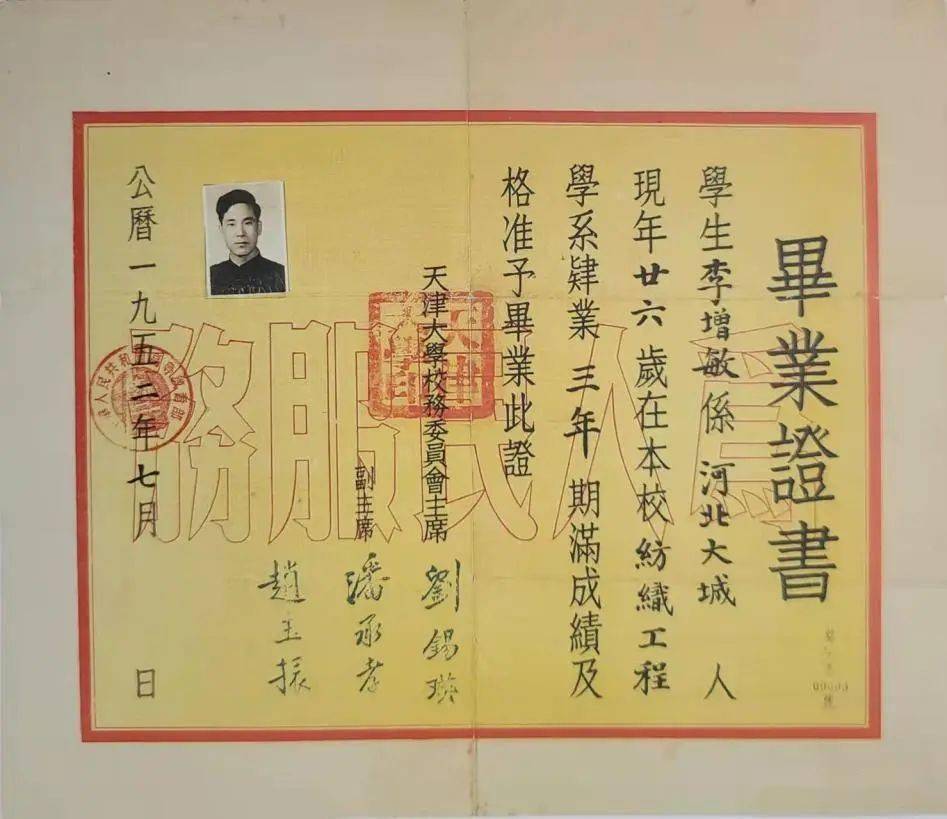 畢業證書
學生李增敏係 河北大城 人
現年廿六歲在本校紡織工程
學系肄業 三年 期滿成績及
格准予畢業此證
天津大學校務委員會主席 劉錫瑛
副主席 潘承孝
趙玉振
公曆一九五二年七月 日
為人民服務